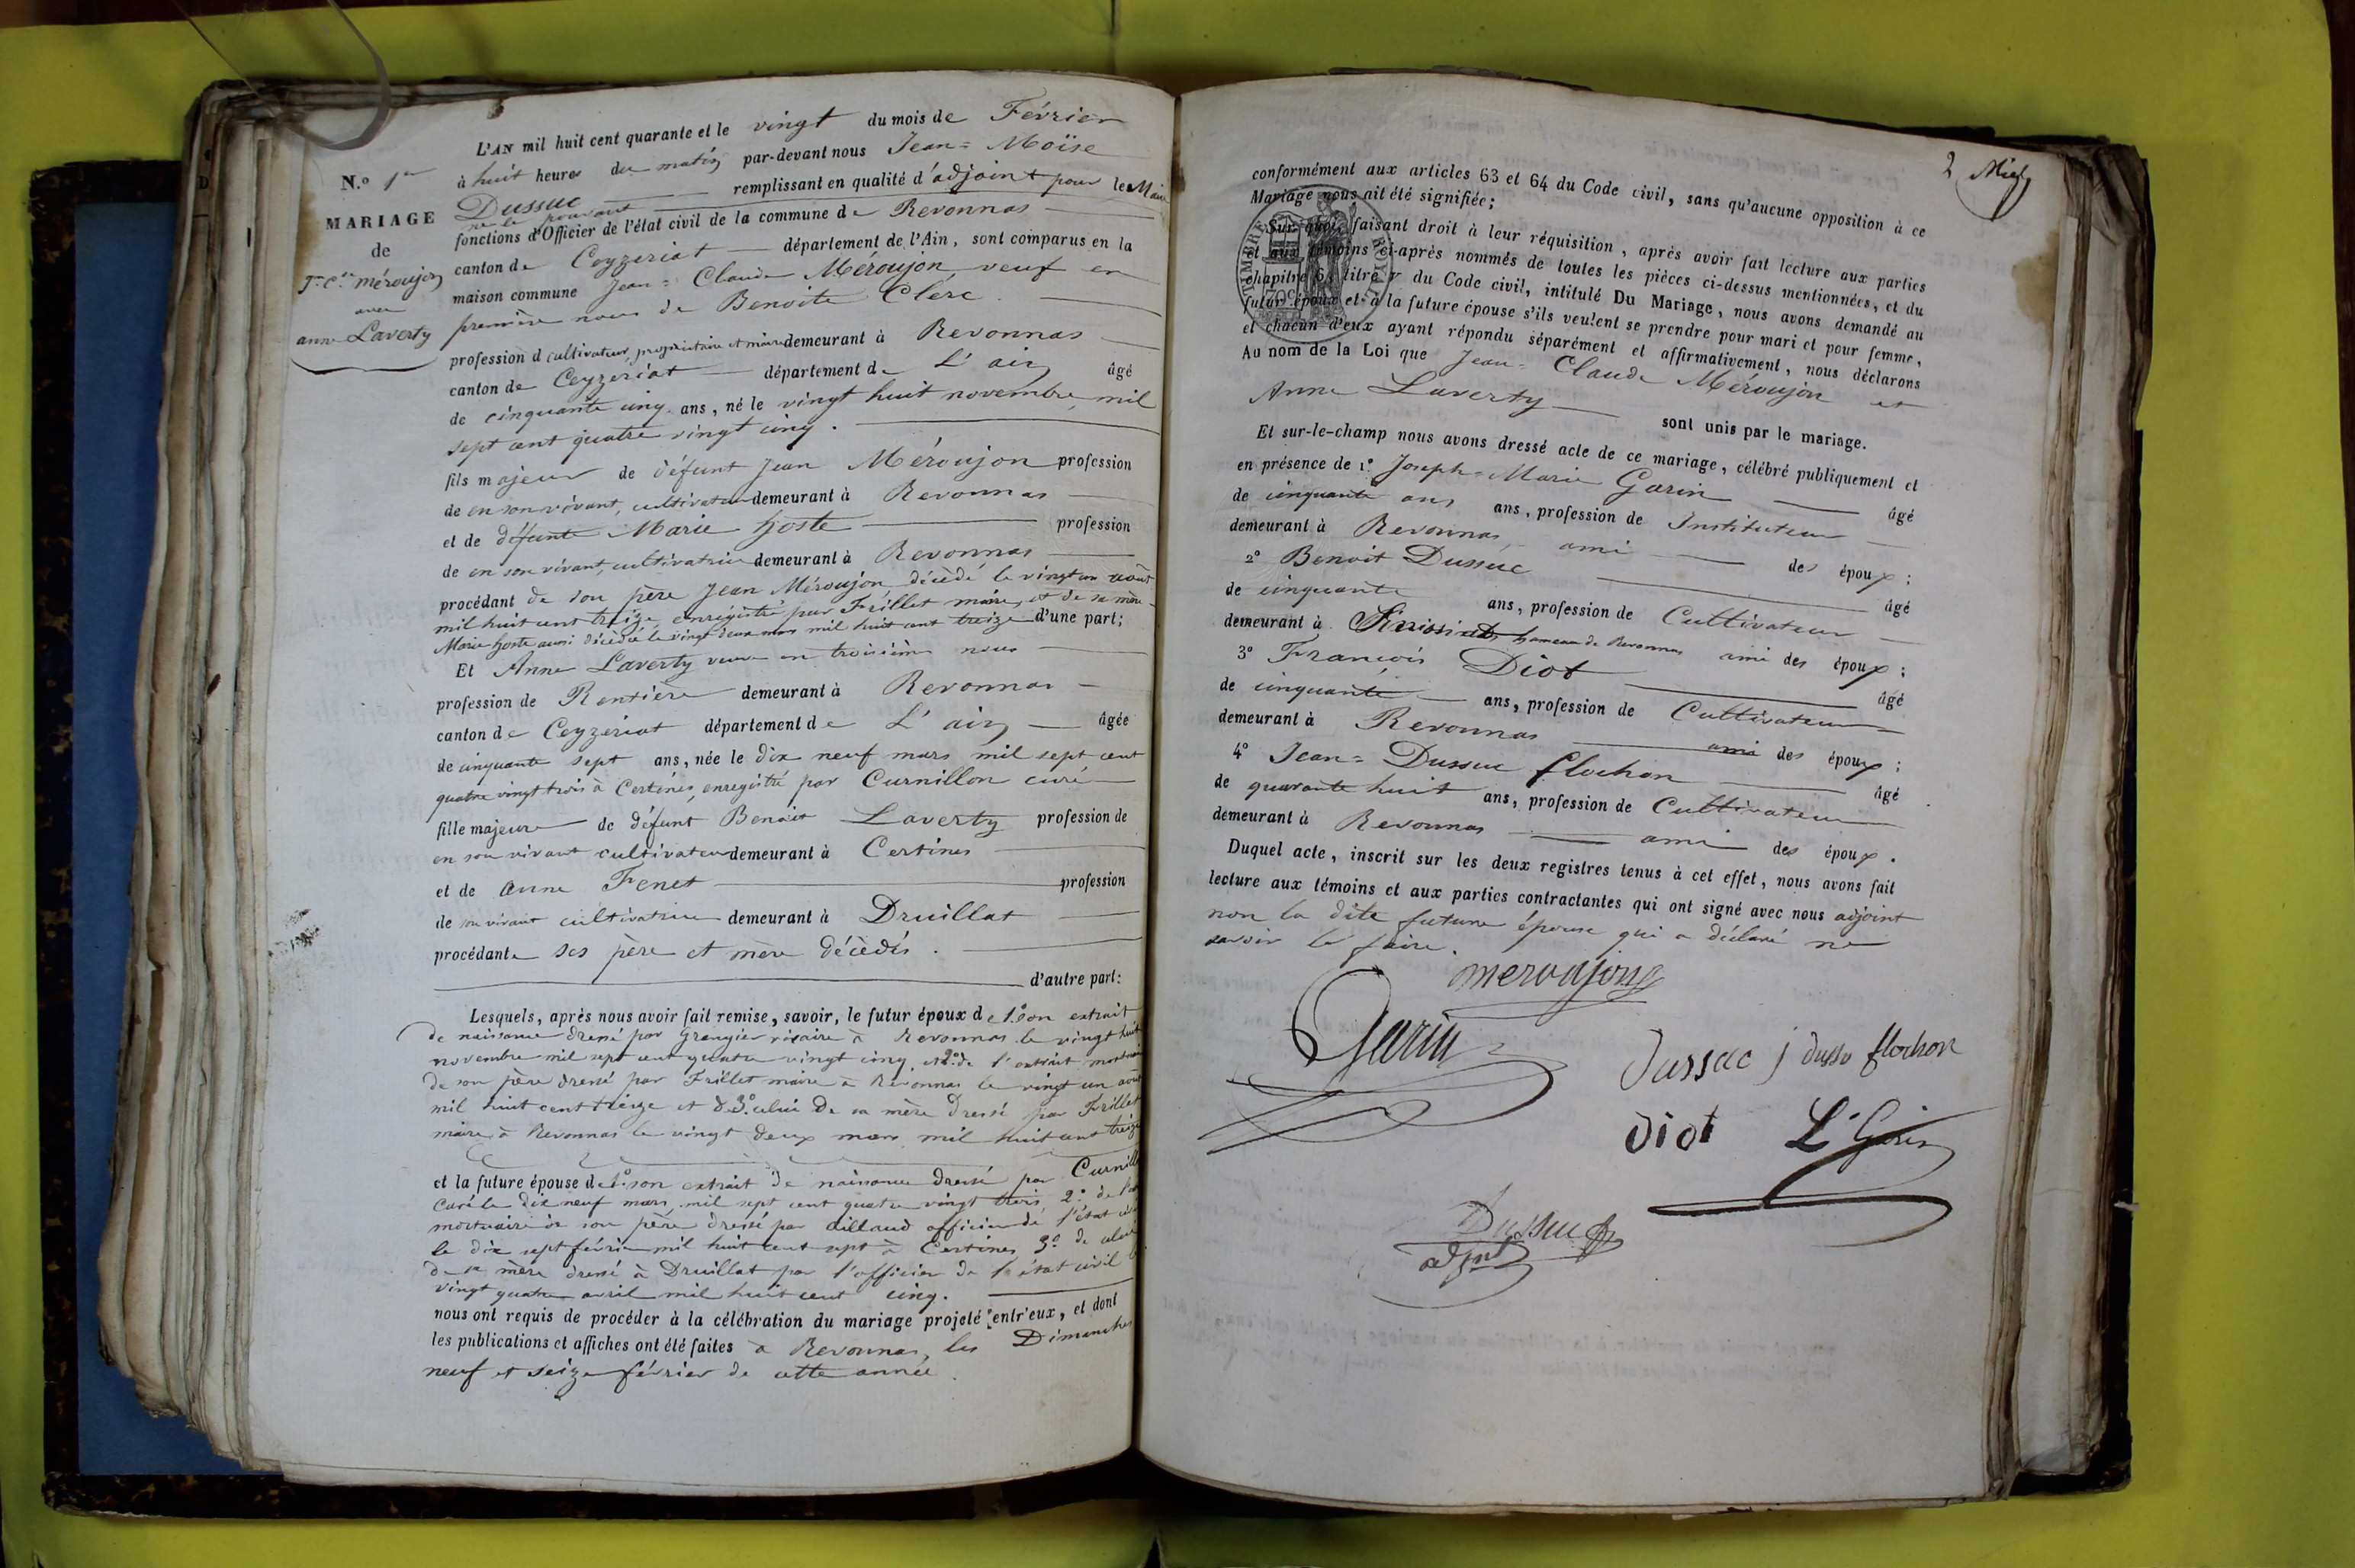 L'AN mil huit cent quarante et le vingt du mois de Février
N.o 1er
à huit heures du matin par-devant nous Jean = Moïse
MARIAGE
Dussuc remplissant en qualité d'adjoint pour le Maire
ne le pouvant
fonctions d'Officier de l'état civil de la commune de Revonnas
de
canton de Ceyzeriat département de l'Ain, sont comparus en la
Jn Cde méroujon
maison commune Jean = Claude Méroujon, veuf en
avec
anne Laverty
première noces de Benoite Clerc.
profession d cultivateur, propriétaire et maire demeurant à Revonnas
canton de Ceyzeriat département de L'ain âgé
de cinquante cinq ans, né le vingt huit novembre mil
sept cent quatre vingt cinq.
fils majeur de défunt Jean Méroujon profession
de en son vivant, cultivateur demeurant à Revonnas
et de défunte Marie Goste profession
de en son vivant, cultivatrice demeurant à Revonnas
procédant de son père Jean Méroujon, décèdé le vingt un août
mil huit cent treize, enregistré par Frillet maire, et de sa mère
Marie Goste aussi décèdée le vingt deux mars mil huit cent treize d'une part;
Et Anne Laverty veuve en troisième noces
profession de Rentière demeurant à Revonnas
canton de Ceyzeriat département de L'ain âgée
de cinquante sept ans, née le dix neuf mars mil sept cent
quatre vingt trois à Certines, enregistré par Curnillon curé
fille majeure de défunt Benoit Laverty profession de
en son vivant cultivateur demeurant à Certines
et de anne Fenet profession
de son vivant cultivatrice demeurant à Druillat
procédante ses père et mère décèdés.
d'autre part:
Lesquels, après nous avoir fait remise, savoir, le futur époux de 1.o son extrait
de naissance dressé par Grangier vicaire à Revonnas le vingt huit
novembre mil sept cent quatre vingt cinq, et 2.o de l'extrait mortuaire
de son père dressé par Frillet maire à Revonnas le vingt un août
mil huit cent treize et de 3.o celui de sa mère dressé par Frillet
maire à Revonnas le vingt deux mars mil huit cent treize
et la future épouse de 1.o son extrait de naissance dressé par Curnill
curé le dix neuf mars mil sept cent quatre vingt trois 2.o de l'ex
mortuaire de son père dressé par aillaud officier de l'état ci
le dix sept février mil huit cent sept à Certines 3.o de celui
de sa mère dressé à Druillat par l'officier de l'état civil
vingt quatre avril mil huit cent cinq.
nous ont requis de procéder à la célébration du mariage projeté entr'eux, et dont
les publications et affiches ont été faites à Revonnas, les Dimanches
neuf et seize février de cette année.
2
conformément aux articles 63 et 64 du Code civil, sans qu'aucune opposition à ce
Mariage nous ait été signifiée;
TIMBRE ROYAL
Sur quoi, faisant droit à leur réquisition, après avoir fait lecture aux parties
et aux témoins ci-après nommés de toutes les pièces ci-dessus mentionnées, et du
chapitre 6, titre V du Code civil, intitulé Du Mariage, nous avons demandé au
futur époux et à la future épouse s'ils veulent se prendre pour mari et pour femme,
et chacun d'eux ayant répondu séparément et affirmativement, nous déclarons
Au nom de la Loi que Jean = Claude Méroujon et
Anne Laverty sont unis par le mariage.
Et sur-le-champ nous avons dressé acte de ce mariage, célébré publiquement et
en présence de 1.o Joseph = Marie Garin âgé
de cinquante ans ans, profession de Instituteur
demeurant à Revonnas ami des époux;
2o Benoit Dussuc âgé
de cinquante ans, profession de Cultivateur
demeurant à hameau de Revonnas ami des époux;
3o François Diot âgé
de cinquante ans, profession de Cultivateur
demeurant à Revonnas ami des époux;
4o Jean = Dussuc flochon âgé
de quarante huit ans, profession de Cultivateur
demeurant à Revonnas ami des époux.
Duquel acte, inscrit sur les deux registres tenus à cet effet, nous avons fait
lecture aux témoins et aux parties contractantes qui ont signé avec nous adjoint
non la dite future épouse qui a déclaré ne
savoir le faire.
merojong
Garin
Dussuc j dussu flochon
diot L. Garin
Dussuc
adjnt